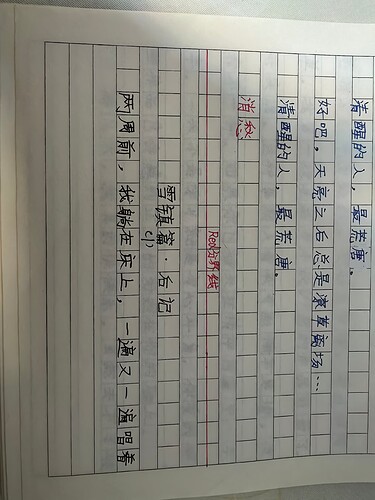 清醒的人，最荒唐。
好吧。天亮之后总是潦草离场…
清醒的人，最荒唐。
消愁
Red分界线
雪镇篇·后记
两周前，我躺在床上，一遍又一遍唱着